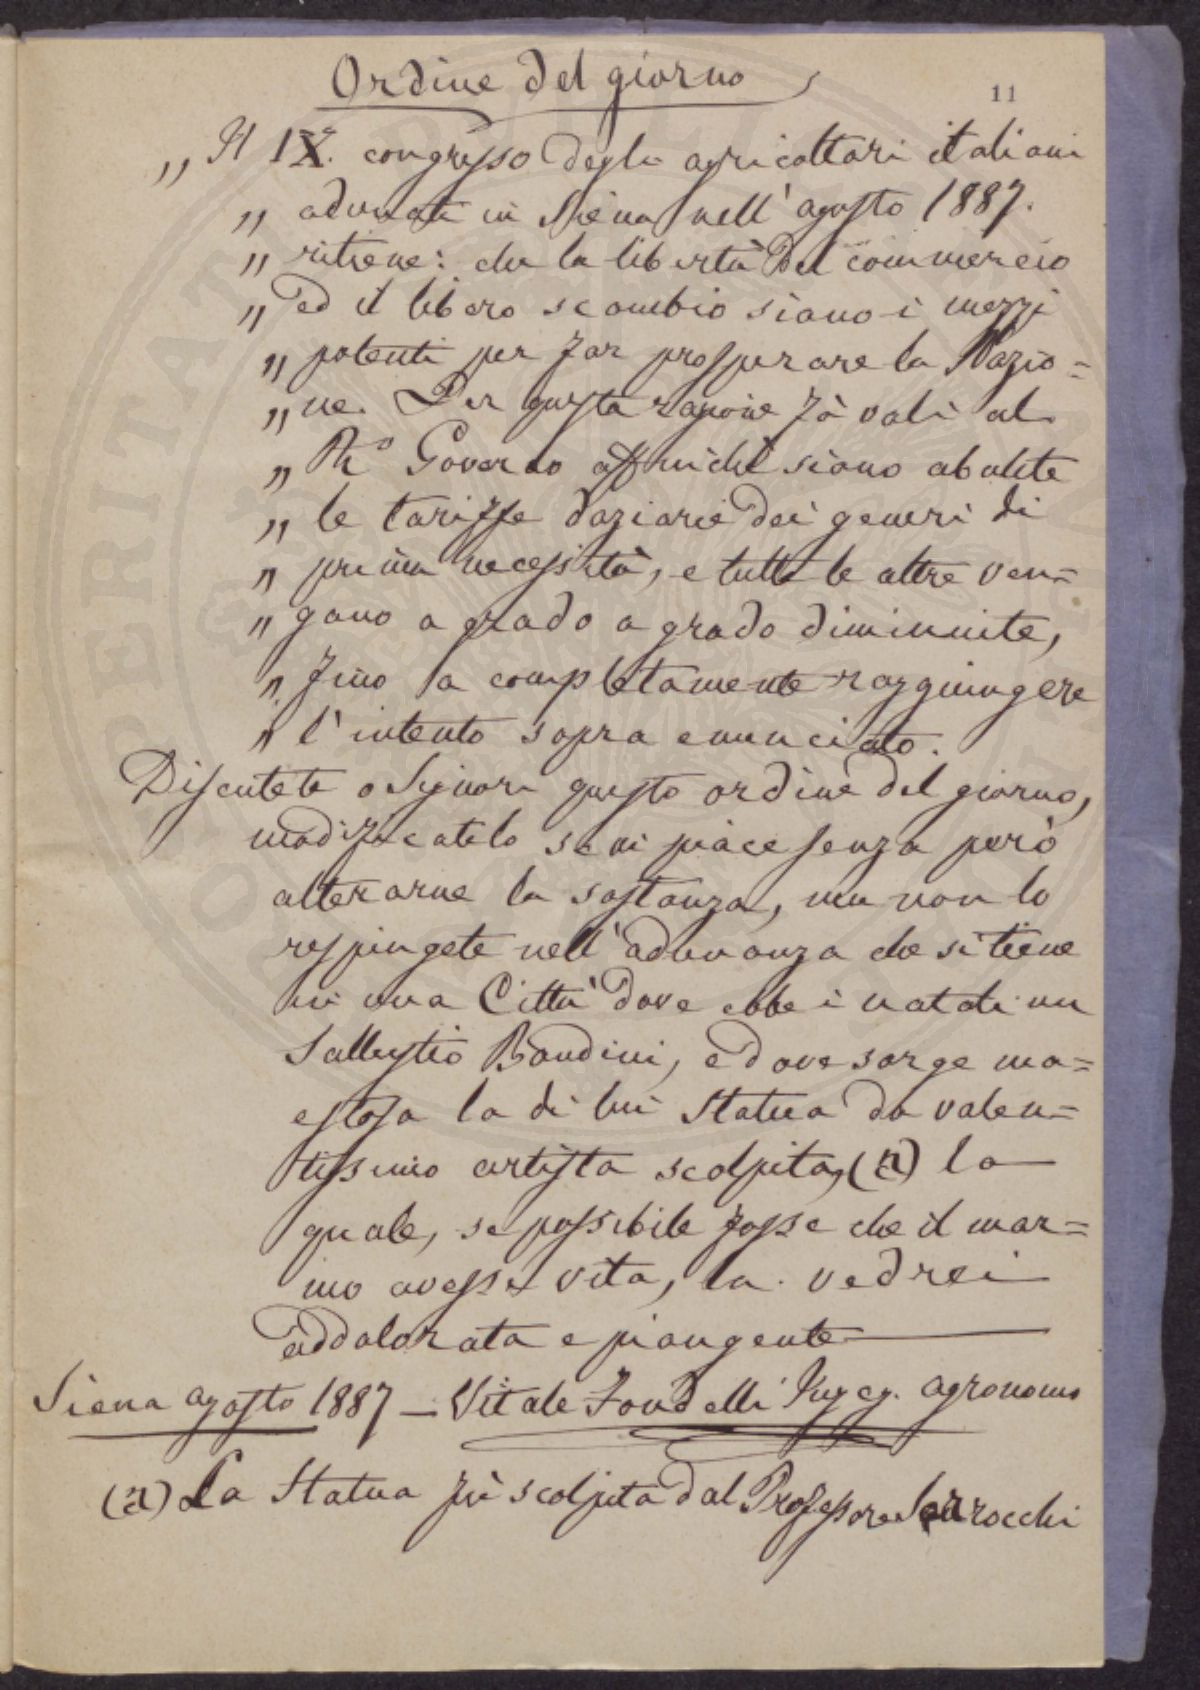 Ordine del giorno
11
„ Il IX. congresso degli agricoltori italiani
„ adunati in Siena nell' agosto 1887.
„ ritiene: che la libertà del commercio
„ ed il libero scambio siano i mezzi
„ potenti per far prosperare la Nazio=
„ ne. Per questa ragione fà voti al
„ R.º Governo affinchè siano abolite
„ le tariffe daziarie dei generi di
„ prima necessità, e tutte le altre ven=
„ gano a grado a grado diminuite,
„ fino a completamente raggiungere
„ l'intento sopra enunciato.
Discutete o Signori questo ordine del giorno,
modificatelo se vi piace senza però
alterarne la sostanza, ma non lo
respingete nell'adunanza che si tiene
in una Città dove ebbe i natali un
Sallustio Bandini, e dove sorge ma=
estosa la di lui Statua da valen=
tissimo artista scolpita, (a) la
quale, se possibile fosse che il mar=
mo avesse vita, la vedrei
addolorata e piangente
Siena agosto 1887 — Vitale Fondelli Ingeg. agronomo
(a) La Statua fù scolpita dal Professore Sarrocchi